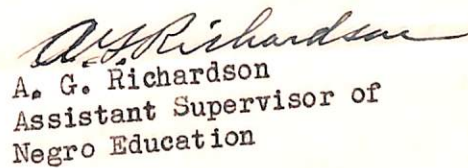 A. G. Richardson
A. G. Richardson
Assistant Supervisor of
Negro Education